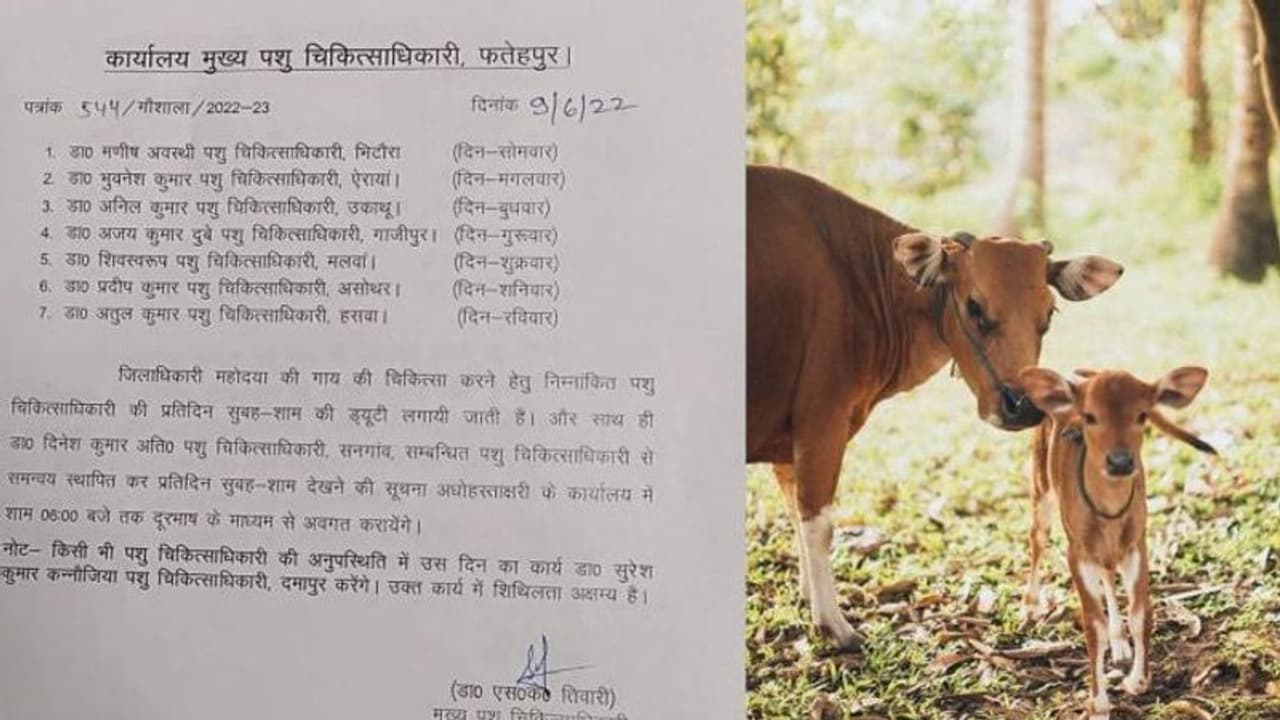 कार्यालय मुख्य पशु चिकित्साधिकारी, फतेहपुर।
पत्रांक 544/गौशाला/2022-23 दिनांक 9/6/22
1. डा0 मणीष अवस्थी पशु चिकित्साधिकारी, भिटौरा (दिन-सोमवार)
2. डा0 भुवनेश कुमार पशु चिकित्साधिकारी, ऐरायां। (दिन-मंगलवार)
3. डा0 अनिल कुमार पशु चिकित्साधिकारी, उकाथू। (दिन-बुधवार)
4. डा0 अजय कुमार दुबे पशु चिकित्साधिकारी, गाजीपुर। (दिन-गुरूवार)
5. डा0 शिवस्वरूप पशु चिकित्साधिकारी, मलवां। (दिन-शुक्रवार)
6. डा0 प्रदीप कुमार पशु चिकित्साधिकारी, असोथर। (दिन-शनिवार)
7. डा0 अतुल कुमार पशु चिकित्साधिकारी, हसवा। (दिन-रविवार)
जिलाधिकारी महोदया की गाय की चिकित्सा करने हेतु निम्नांकित पशु
चिकित्साधिकारी की प्रतिदिन सुबह-शाम की ड्यूटी लगायी जाती है। और साथ ही
डा0 दिनेश कुमार अति0 पशु चिकित्साधिकारी, सनगांव, सम्बन्धित पशु चिकित्साधिकारी से
समन्वय स्थापित कर प्रतिदिन सुबह-शाम देखने की सूचना अधोहस्ताक्षरी के कार्यालय में
शाम 06:00 बजे तक दूरभाष के माध्यम से अवगत करायेंगे।
नोट- किसी भी पशु चिकित्साधिकारी की अनुपस्थिति में उस दिन का कार्य डा0 सुरेश
कुमार कन्नौजिया पशु चिकित्साधिकारी, दमापुर करेंगे। उक्त कार्य में शिथिलता अक्षम्य है।
(डा0 एस0के0 तिवारी)
मुख्य पशु चिकित्साधिकारी